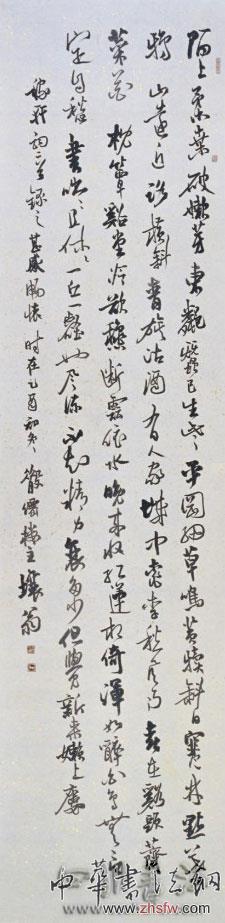 陌上柔桑破嫩芽東鄰蠶種已生些平岡細草鳴黃犢斜日寒林點暮
鴉山遠近路橫斜青旗沽酒有人家城中桃李愁風雨春在溪頭薺
菜花枕簟谿堂冷欲秋斷雲依水晚來收紅蓮相倚渾如醉白鳥無言
定自愁書咄咄且休休一丘一壑也風流不知筋力衰多少但覺新來懶上樓
稼軒詞二首錄之甚感暢懷時在乙酉初冬樓主壤翁
中华书法网
www.zhsfw.com